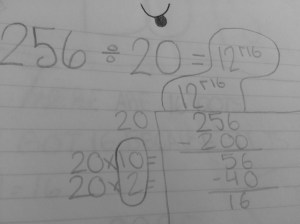 256 ÷ 20 = 12 r16
12 r16
20 256
20 x 10 = - 200
56
20 x 2 = - 40
16